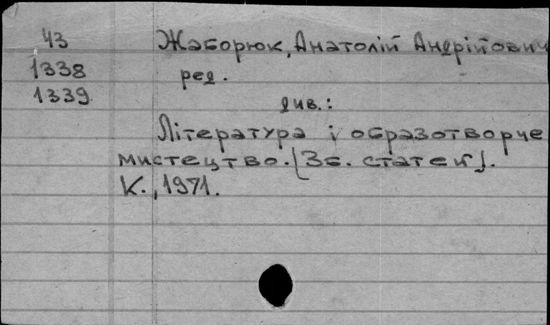 43 Жаборюк, Анатолій Андрійович
1338 ред.
1339 див.:
Література і образотворче
мистецтво. [Зб. статей].
К., 1971.